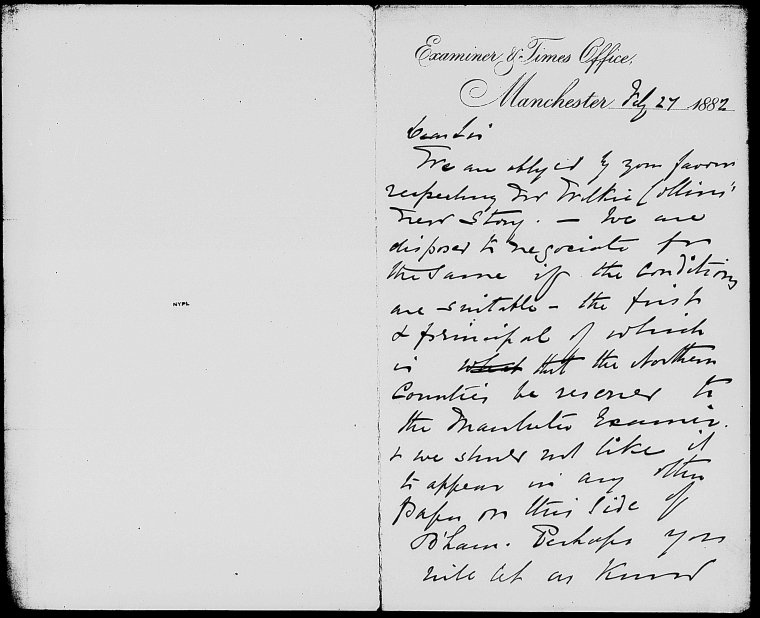 NYPL
Examiner & Times Office.
Manchester Feby 27 1882
Dear Sir
We are obliged by your favour
respecting Mr Wilkie Collins'
new Story. – We are
disposed to negociate for
the same if the conditions
are suitable – the first
& principal of which
is what that the Northern
Counties be reserved to
the Manchester Examiner.
& we should not like it
to appear in any other
Paper on this side of
B'ham. Perhaps you
will let us know